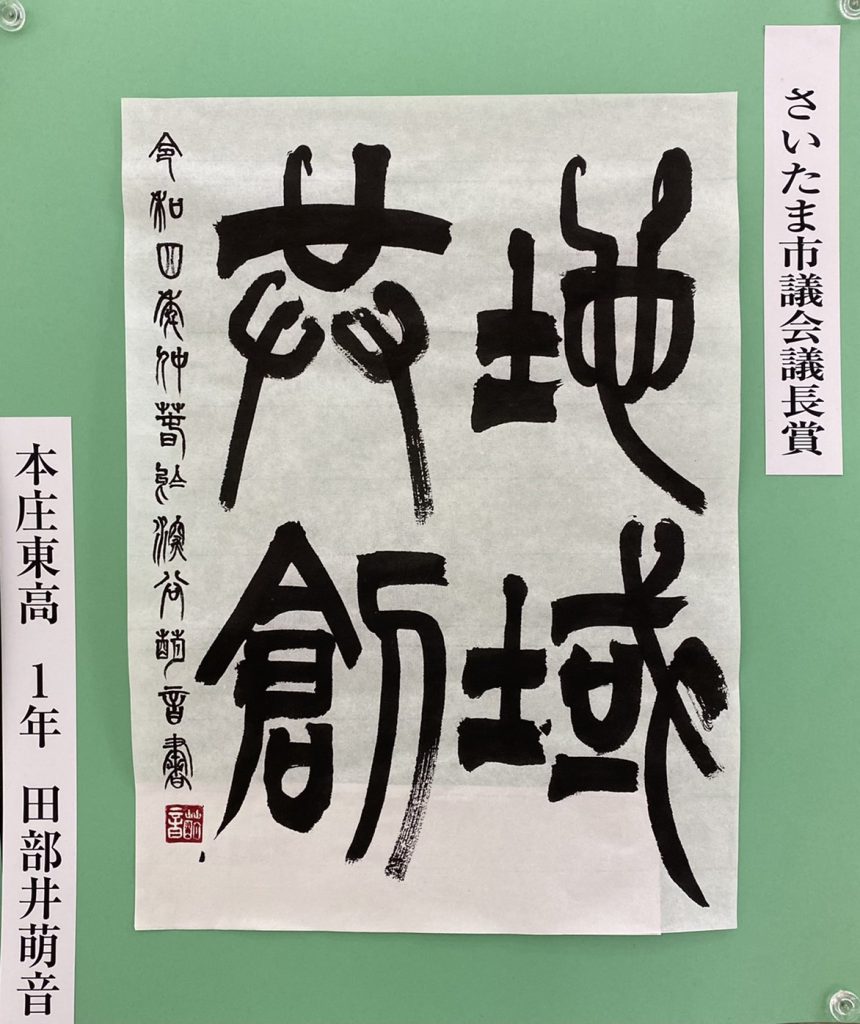 さいたま市議会議長賞
地域
共創
令和四年仲春於渓谷萌音書
萌音
本庄東高 1年 田部井萌音